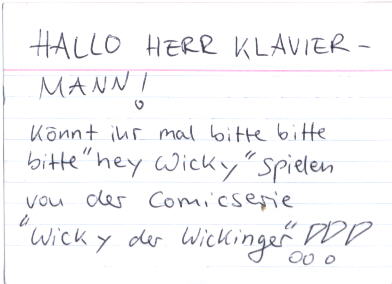 HALLO HERR KLAVIER-
MANN!
Könnt ihr mal bitte bitte
bitte "hey Wicky" spielen
von der Comicserie
"Wicky der Wickinger"!!!